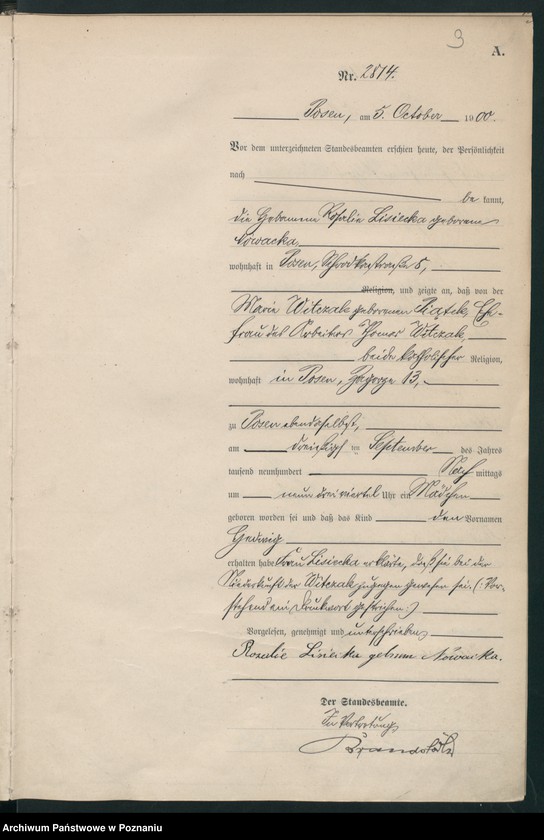 3
A.
Nr. 2814.
Posen, am 5. October 1900.
Vor dem unterzeichneten Standesbeamten erschien heute, der Persönlichkeit
nach
be kannt,
die Hebamme Rosalie Lisiecka geborene
Nowacka,
wohnhaft in Posen, Schrodkastraße 5,
Religion, und zeigte an, daß von der
Marie Witczak geborenen Piątek, Ehe-
frau des Arbeiters Thomas Witczak,
beide katholischer Religion,
wohnhaft in Posen, Zagorze 13,
zu Posen ebendaselbst,
am dreißigsten September des Jahres
tausend neunhundert Nach mittags
um neun dreiviertel Uhr ein Mädchen
geboren worden sei und daß das Kind den Vornamen
Hedwig
erhalten habe. Frau Lisiecka erklärte, daß sie bei der
Niederkunft der Witczak zugegen gewesen sei. (: Vor-
stehend ein Druckwort gestrichen :)
Vorgelesen, genehmigt und unterschrieben
Rosalie Lisiecka geborene Nowacka.
Der Standesbeamte.
In Vertretung
Archiwum Państwowe w Poznaniu